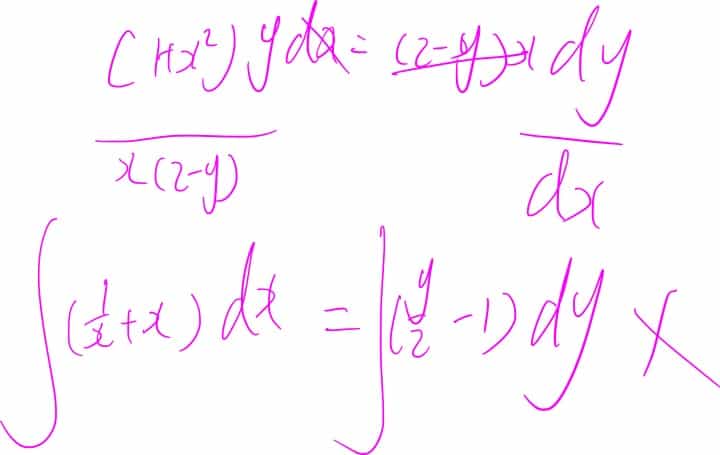 (1+x²) y dx = (2-y) x dy
x(2-y) dx
∫(1/x + x) dx = ∫(y/2 - 1) dy ×